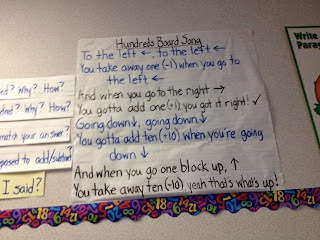 Hundreds Board Song
To the left ←, to the left ←
You take away one (-1) when you go to
the left ←
And when you go to the right →
You gotta add one (+1) you got it right! ✓
Going down↓, going down↓
You gotta add ten (+10) when you're going
down ↓
And when you go one block up, ↑
You take away ten (-10) yeah that's what's up!
Why? How?
Why? How?
match your answer?
posed to add/subtract?
I said?
Write
Para